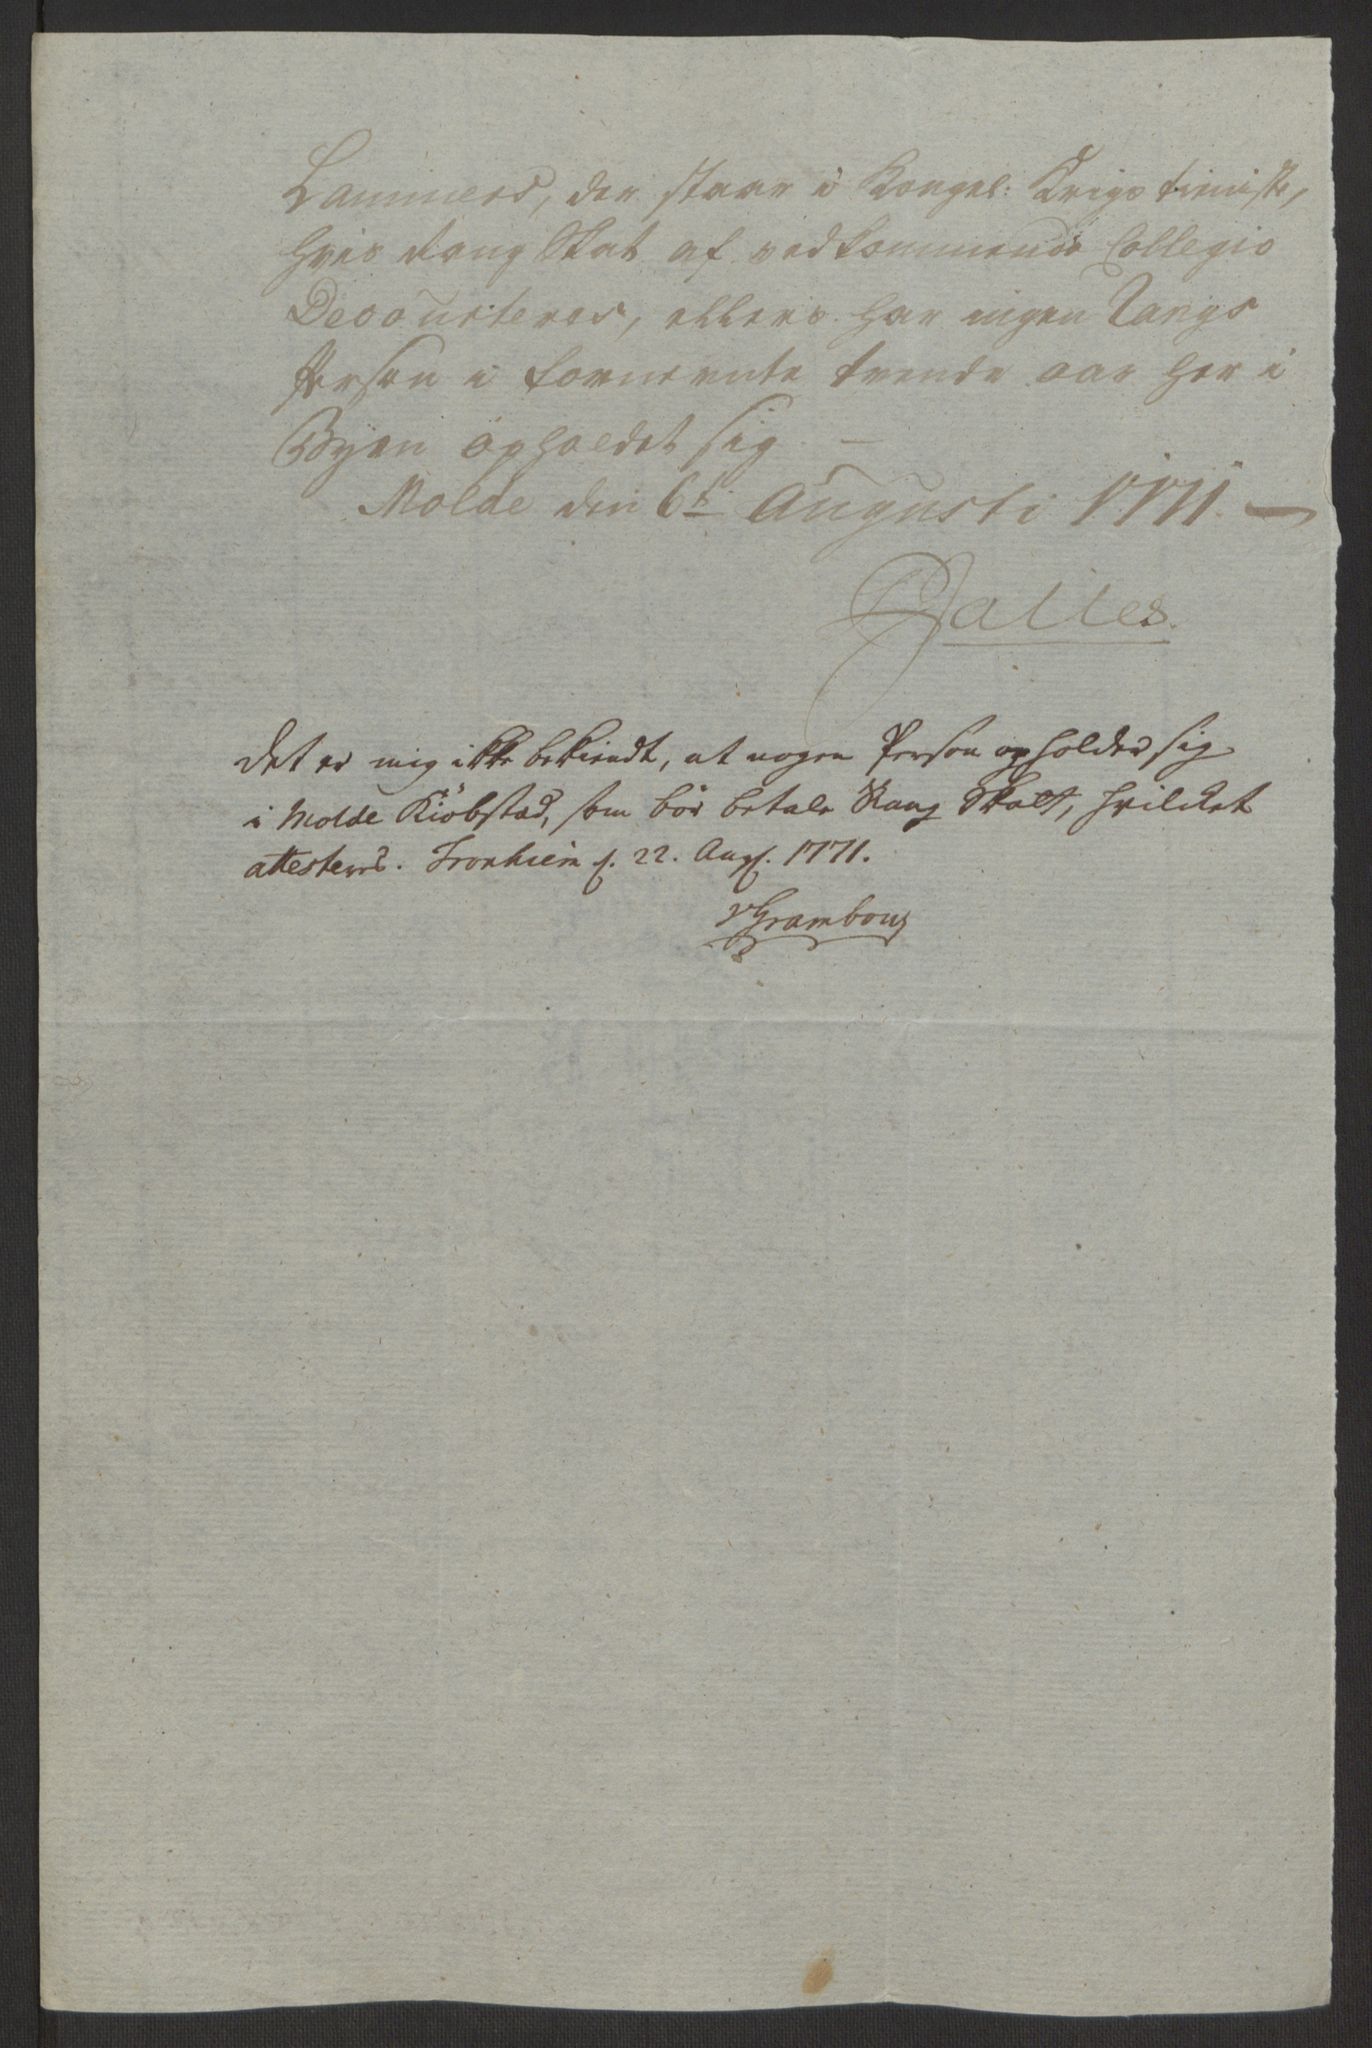 Lammers, der staar i Kongel: Krigs tieniste,
hvis Rang Skat af vedkommende Collegio
Decourteres, ellers har ingen Rangs
Person i fornevnte trende aar her i
Byen opholdet sig. —
Molde den 6te Augusti 1771. —
Dalles.
Det er mig ikke bekiendt, at nogen Person opholder sig
i Molde Kiöbstad, som bör betale Rang Skatt, hvilcket
attesteres. Tronhiem d. 22. Aug. 1771.
vGrambow